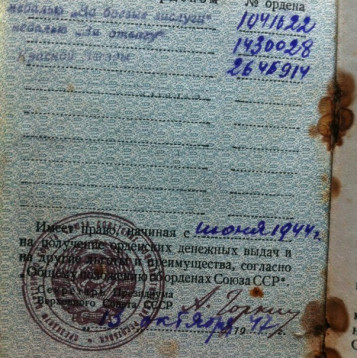 орденом № ордена
медалью „За боевые заслуги" 1041622
медалью „За отвагу" 1430028
Красной Звезды 2646914
Имеет право, начиная с июня 1944 г.
на получение орденских денежных выдач и
на другие льготы и преимущества, согласно
„Общему положению об орденах Союза ССР".
Секретарь Президиума
Верховного Совета СССР А. Горкин
„ 13 " октября 1947 г.